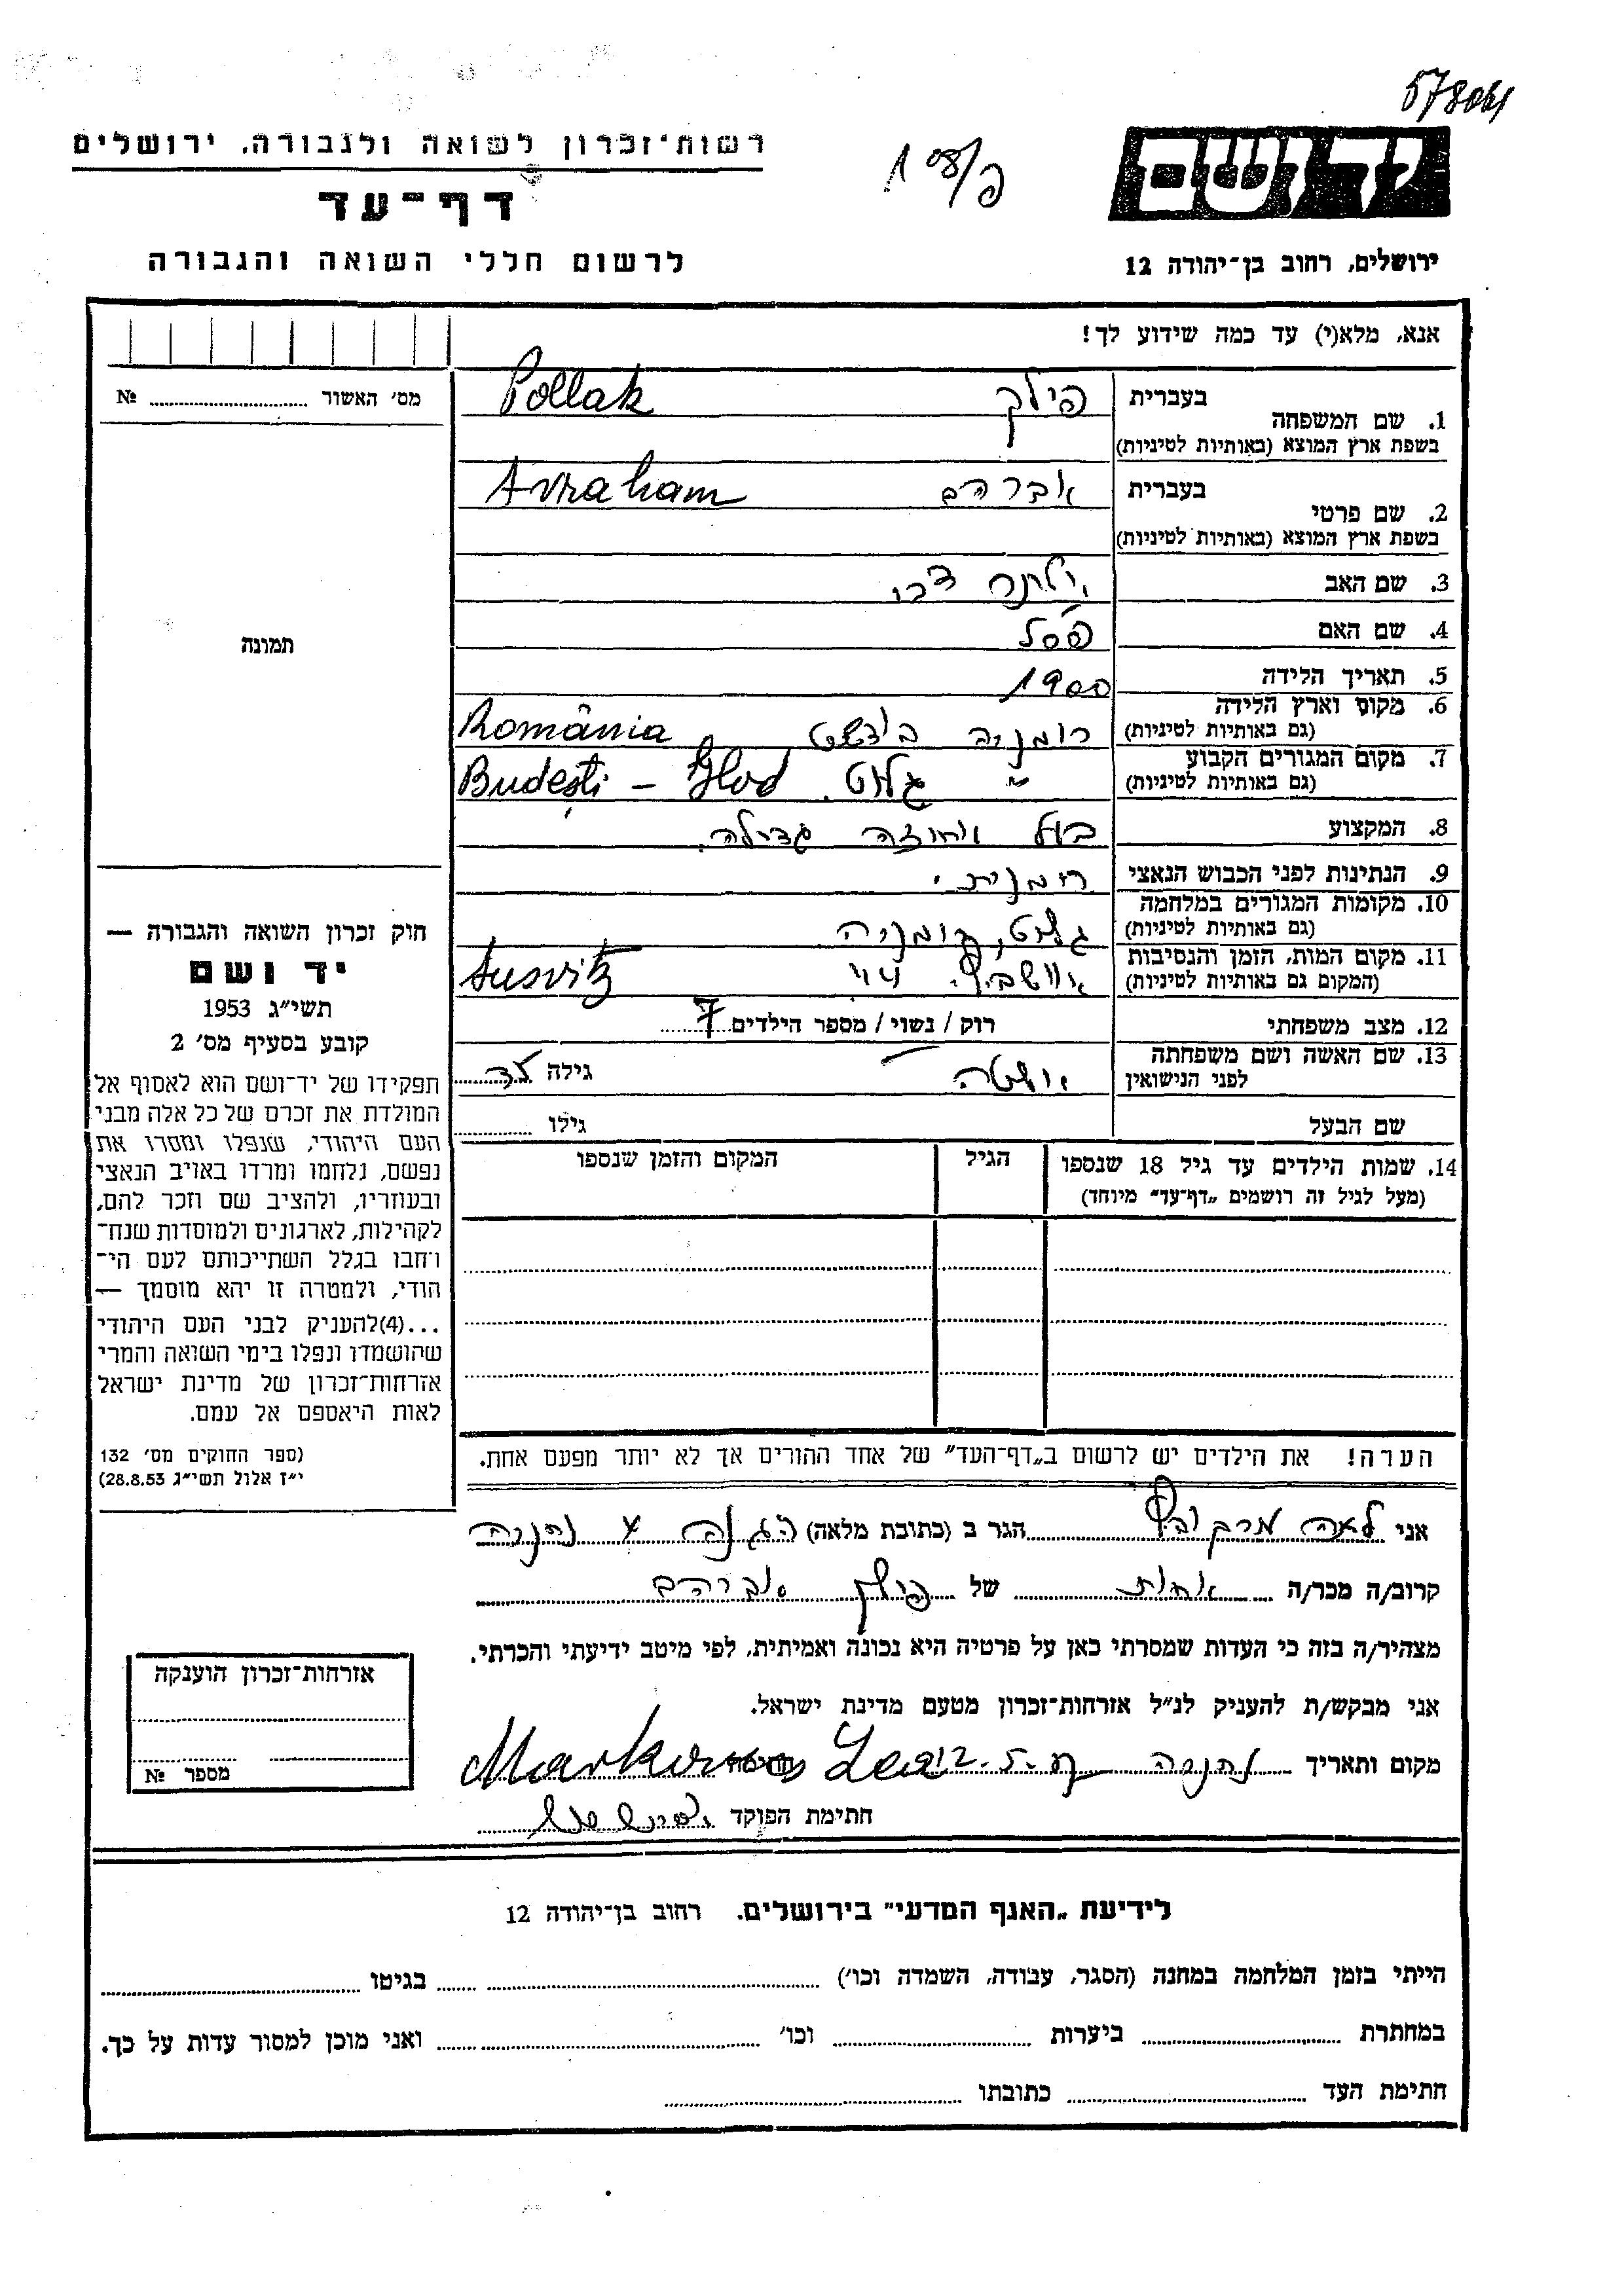 578061
רשות־זכרון לשואה ולגבורה, ירושלים
יד ושם
דף־עד
לרשום חללי השואה והגבורה
ירושלים, רחוב בן־יהודה 12
אנא, מלא(י) עד כמה שידוע לך!
מס׳ האשור № 
1. שם המשפחה בעברית פולק Pollak
בשפת ארץ המוצא (באותיות לטיניות)
2. שם פרטי בעברית אברהם Avraham
בשפת ארץ המוצא (באותיות לטיניות)
3. שם האב
4. שם האם פסל
5. תאריך הלידה 1900
6. מקום וארץ הלידה רומניה בודשט România
(גם באותיות לטיניות)
7. מקום המגורים הקבוע " גלוט. Budești - Glod
(גם באותיות לטיניות)
8. המקצוע בעל אחוזה גדולה.
9. הנתינות לפני הכבוש הנאצי רומנית.
10. מקומות המגורים במלחמה גלוט, רומניה
(גם באותיות לטיניות)
11. מקום המות, הזמן והנסיבות אושביץ. Ausvitz
(המקום גם באותיות לטיניות)
12. מצב משפחתי רוק / נשוי / מספר הילדים 7
13. שם האשה ושם משפחתה גילה
לפני הנישואין
שם הבעל גילו
14. שמות הילדים עד גיל 18 שנספו הגיל המקום והזמן שנספו
(מעל לגיל זה רושמים „דף־עד״ מיוחד)
הערה! את הילדים יש לרשום ב„דף־העד״ של אחד ההורים אך לא יותר מפעם אחת.
תמונה
חוק זכרון השואה והגבורה —
יד ושם
תשי״ג 1953
קובע בסעיף מס׳ 2
תפקידו של יד־ושם הוא לאסוף אל
המולדת את זכרם של כל אלה מבני
העם היהודי, שנפלו ומסרו את
נפשם, נלחמו ומרדו באויב הנאצי
ובעוזריו, ולהציב שם וזכר להם,
לקהילות, לארגונים ולמוסדות שנח־
רחבו בגלל השתייכותם לעם הי־
הודי, ולמטרה זו יהא מוסמך —
...(4)להעניק לבני העם היהודי
שהושמדו ונפלו בימי השואה והמרי
אזרחות־זכרון של מדינת ישראל
לאות היאספם אל עמם.
(ספר החוקים מס׳ 132
י״ז אלול תשי״ג 28.8.53)
אני לאה מרקוביץ הגר ב (כתובת מלאה) הגנה 4 נהריה
קרוב/ה מכר/ה אחות של פולק אברהם
מצהיר/ה בזה כי העדות שמסרתי כאן על פרטיה היא נכונה ואמיתית, לפי מיטב ידיעתי והכרתי.
אני מבקש/ת להעניק לנ״ל אזרחות־זכרון מטעם מדינת ישראל.
מקום ותאריך נהריה Lea
חתימת הפוקד
אזרחות־זכרון הוענקה
מספר №
לידיעת „האגף המדעי״ בירושלים. רחוב בן־יהודה 12
הייתי בזמן המלחמה במחנה (הסגר, עבודה, השמדה וכו׳) בגיטו
במחתרת ביערות וכו׳ ואני מוכן למסור עדות על כך.
חתימת העד כתובתו